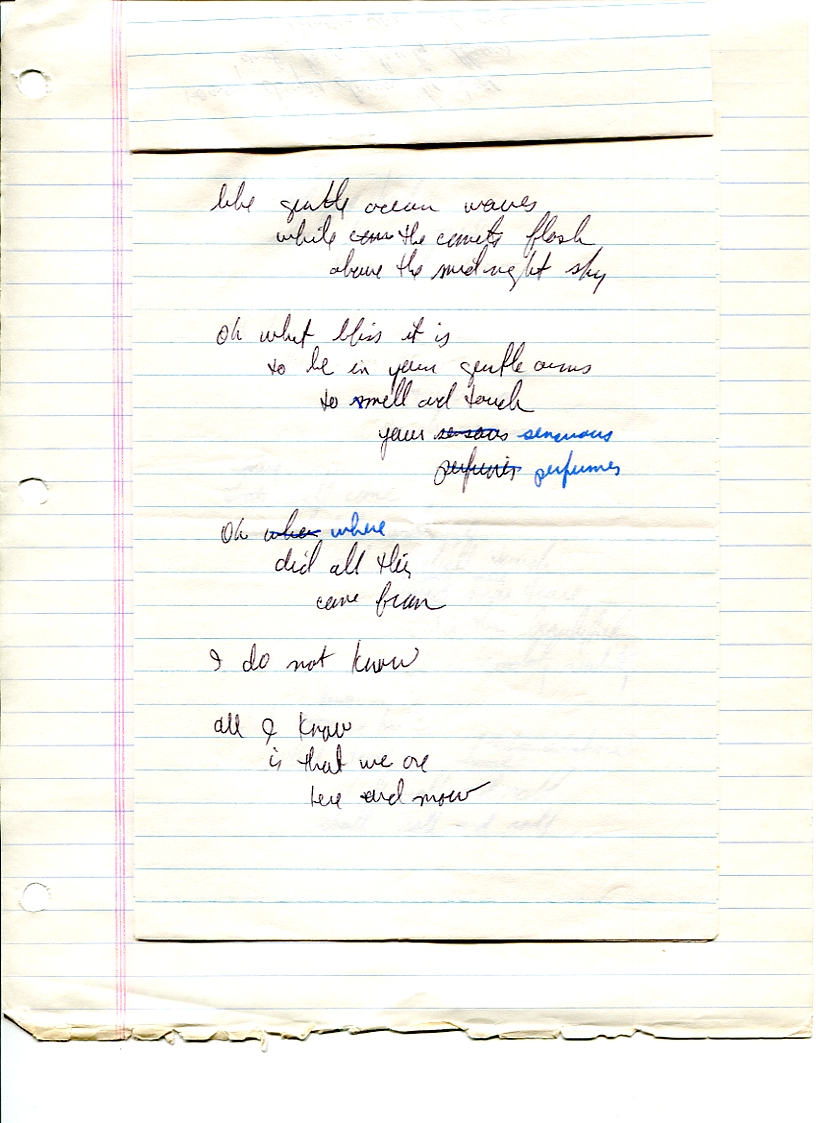 like gentle ocean waves
while come the comets flash
above the midnight sky
Oh what bliss it is
to be in your gentle arms
to smell and touch
your sensous sensuous
perfumes perfumes
Oh when where
did all this
come from
I do not know
all I know
is that we are
here and now